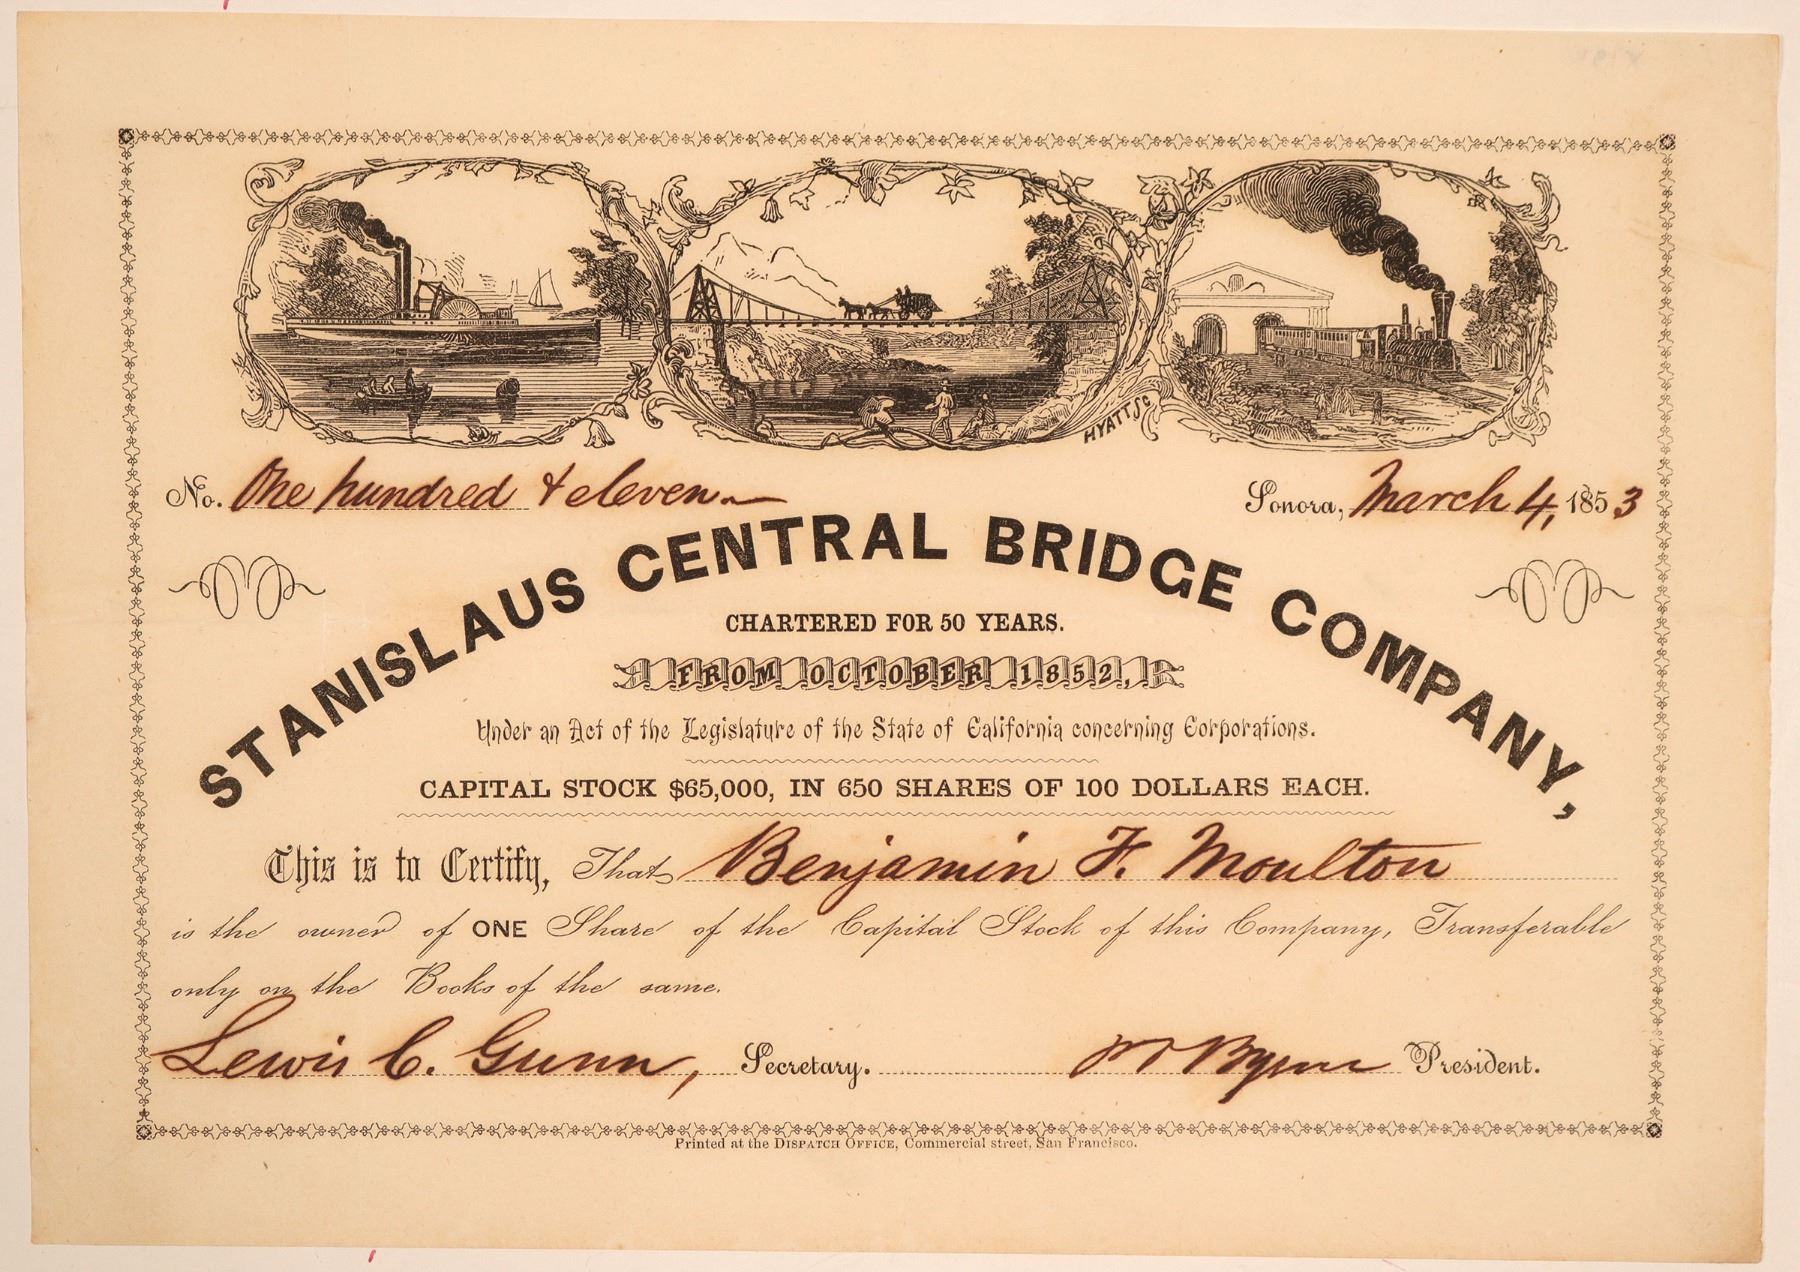 HYATT Sc
No. One hundred & eleven
Sonora, March 4, 1853
STANISLAUS CENTRAL BRIDGE COMPANY,
CHARTERED FOR 50 YEARS.
FROM OCTOBER 1852,
Under an Act of the Legislature of the State of California concerning Corporations.
CAPITAL STOCK $65,000, IN 650 SHARES OF 100 DOLLARS EACH.
This is to Certify, That Benjamin F. Moulton
is the owner of ONE Share of the Capital Stock of this Company, Transferable
only on the Books of the same.
Lewis C. Gunn, Secretary. M Byrne President.
Printed at the DISPATCH OFFICE, Commercial street, San Francisco.